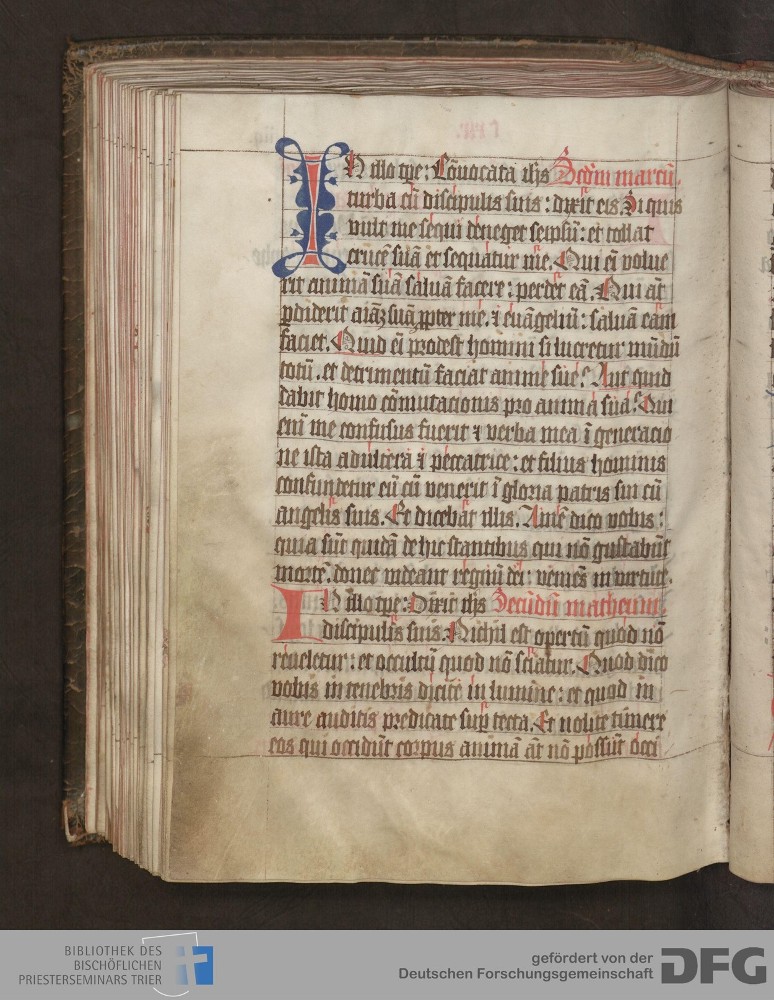 IN illo tp̄e: Cōuocata ihs̄ Scd̄m marcū.
turba cū discipulis suis: dixit eis. Si quis
vult me sequi deneget seipsū: et tollat
crucē suā et sequatur me. Qui ei volue
rit animā suā saluā facere: perdet eā. Qui at̄
pdiderit aīaʒ suā ꝓpter me. ⁊ euāgeliū: saluā eam
faciet. Quid ei prodest homini si lucretur mūdū
totū. et detrimentū faciat anime sue? Aut quid
dabit homo cōmutacionis pro anima sua? Qui
enī me confusus fuerit ⁊ verba mea ī generacio
ne ista adultera ⁊ peccatrice: et filius hominis
confundetur eū cū venerit ī gloria patris sui cū
angelis suis. Et dicebat illis. Amē dico vobis:
quia sūt quidā de hic stantibus qui nō gustabūt
mortē. donec videant regnū dei: veniēs in virtute.
IN illo tp̄e: Dixit ihs̄ Secūdū matheum.
discipulis suis. Nichil est opertū quod nō
reueletur: et occultū quod nō sciatur. Quod dico
vobis in tenebris dicite in lumine: et quod in
aure auditis predicate sup tecta. Et nolite timere
eos qui occidūt corpus animā at̄ nō possūt occi
BIBLIOTHEK DES
BISCHÖFLICHEN
PRIESTERSEMINARS TRIER
gefördert von der
Deutschen Forschungsgemeinschaft DFG